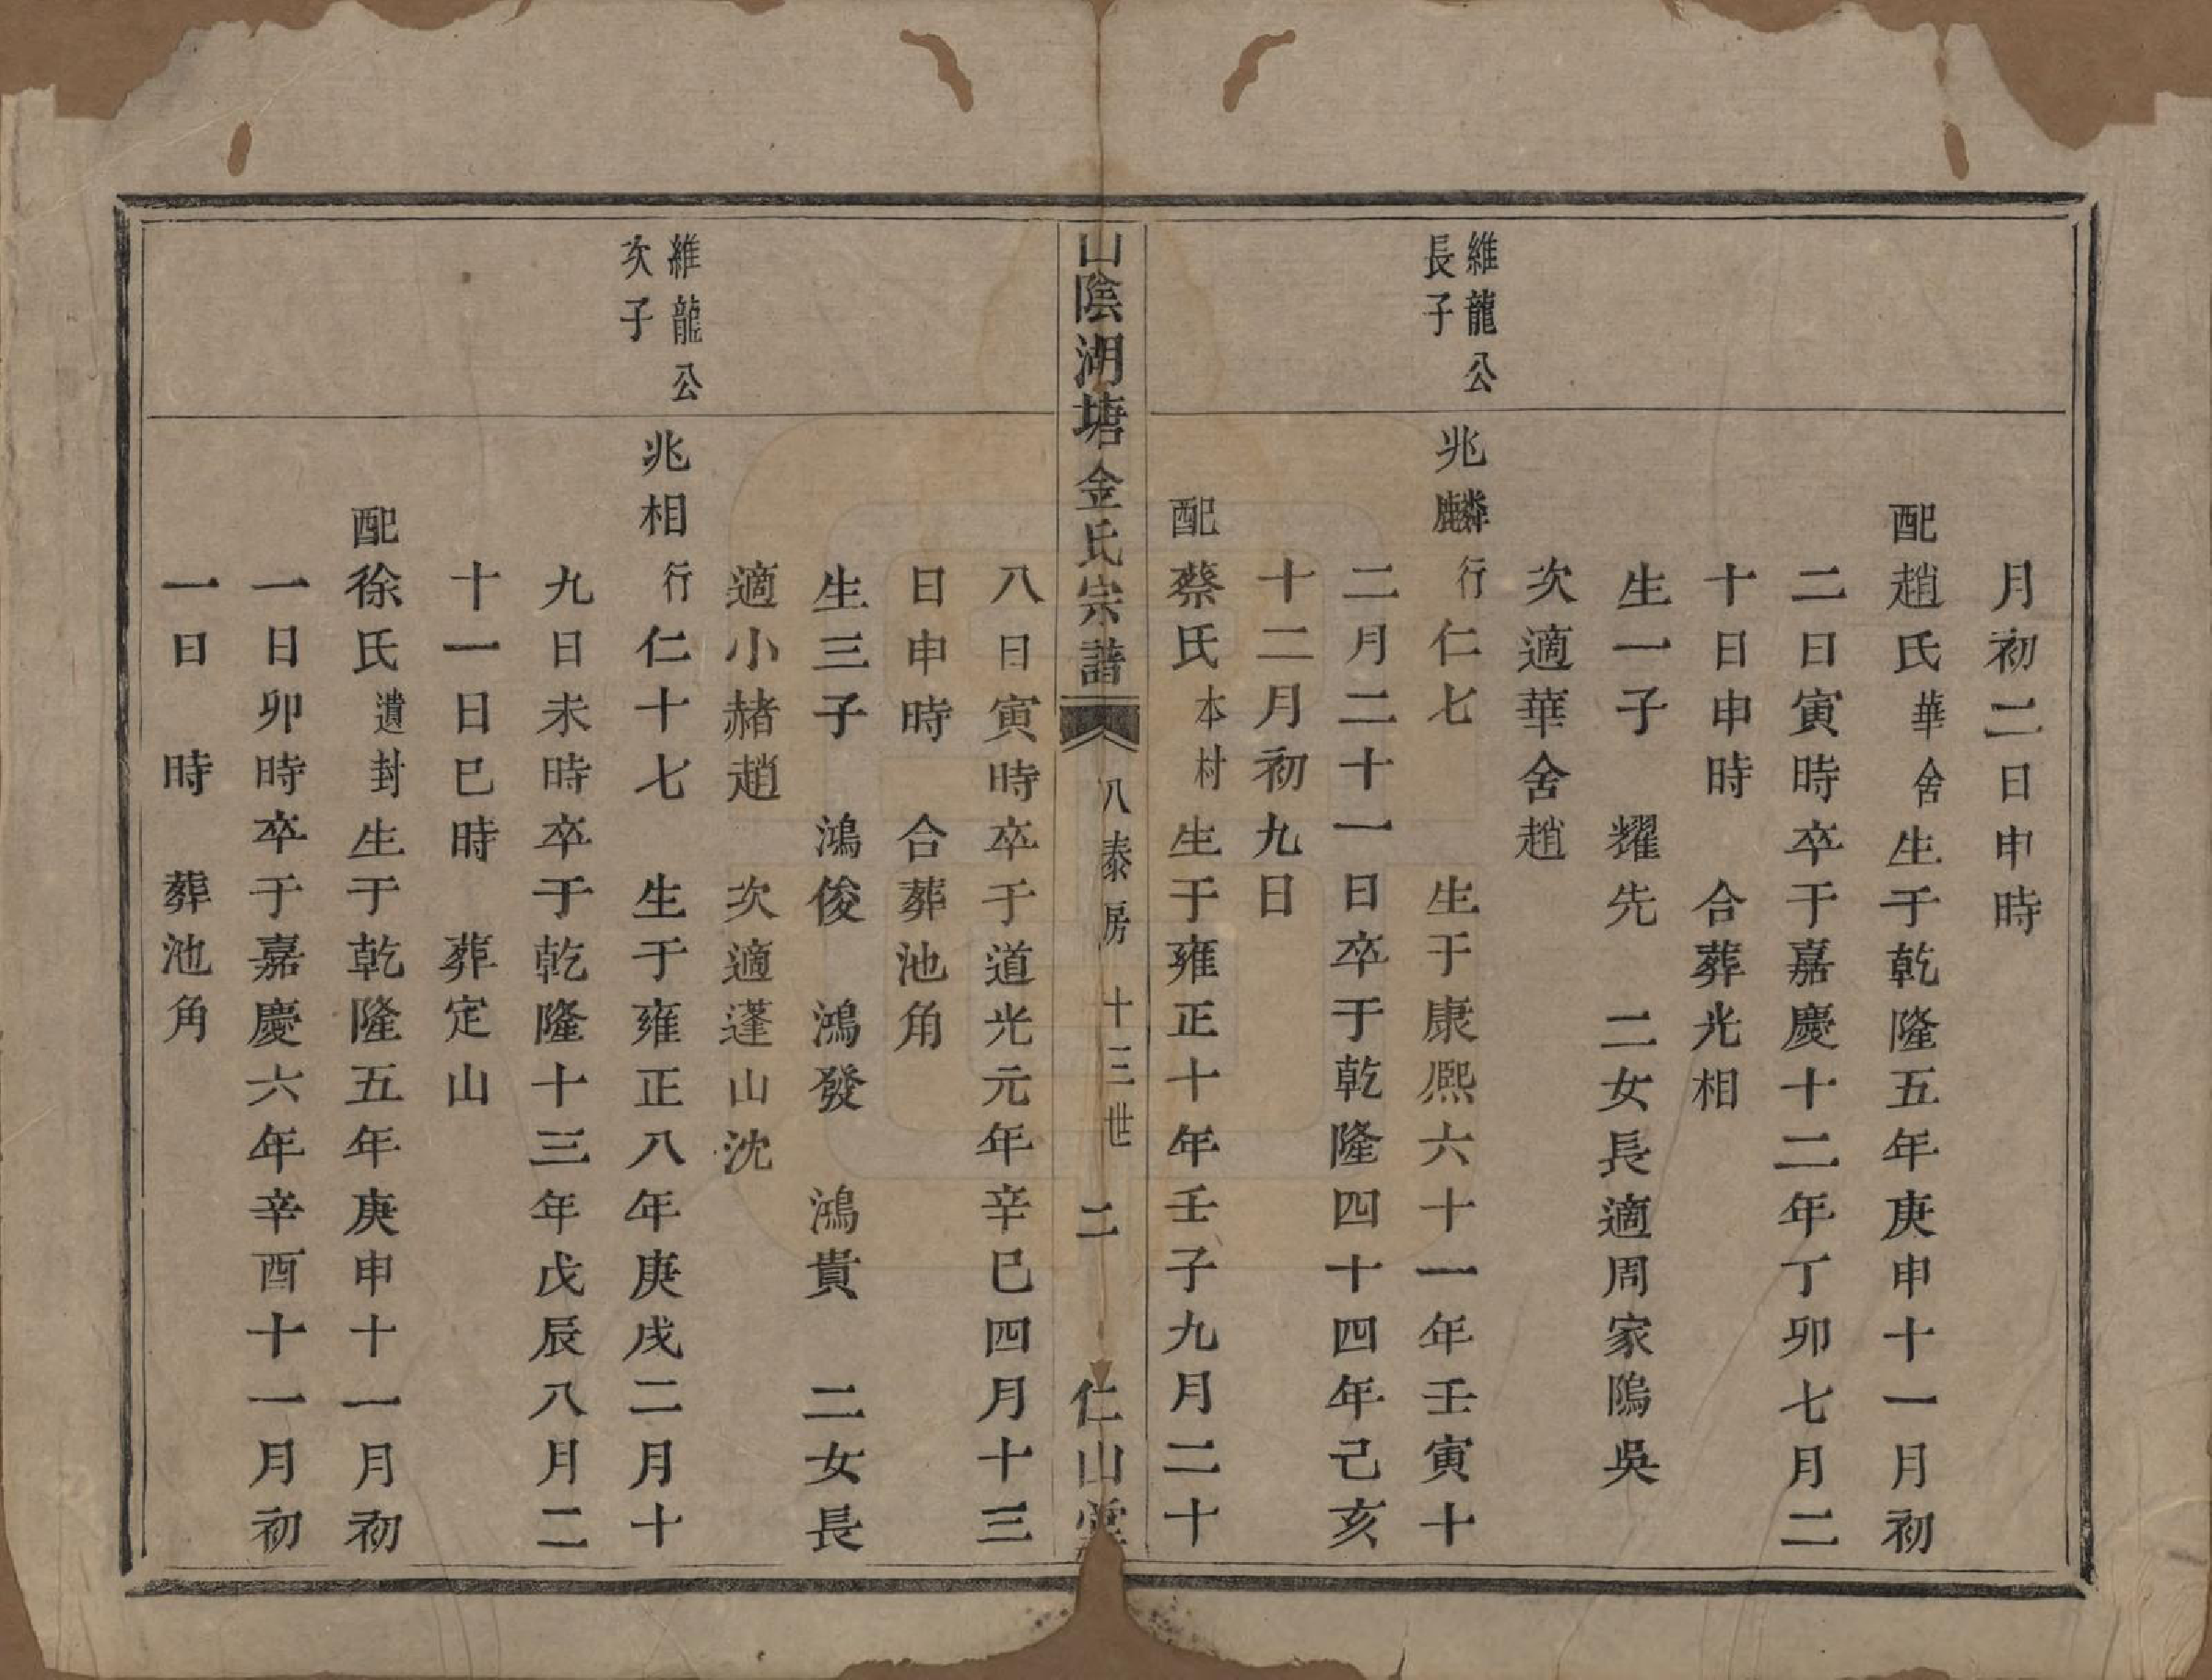 月初二日申時
配趙氏華舍生于乾隆五年庚申十一月初
二日寅時卒于嘉慶十二年丁卯七月二
十日申時　合葬光相
生一子　耀先　二女長適周家隖吳
次適華舍趙
維龍公
長子
兆麟行仁七　生于康熙六十一年壬寅十
二月二十一日卒于乾隆四十四年己亥
十二月初九日
配蔡氏本村生于雍正十年壬子九月二十
山陰湖塘金氏宗譜　八泰房　十三世　二　仁山堂
八日寅時卒于道光元年辛巳四月十三
日申時　合葬池角
生三子　鴻俊　鴻發　鴻貴　二女長
適小赭趙　次適蓬山沈
維龍公
次子
兆相行仁十七　生于雍正八年庚戌二月十
九日未時卒于乾隆十三年戊辰八月二
十一日巳時　葬定山
配徐氏遺封生于乾隆五年庚申十一月初
一日卯時卒于嘉慶六年辛酉十一月初
一日　時　葬池角